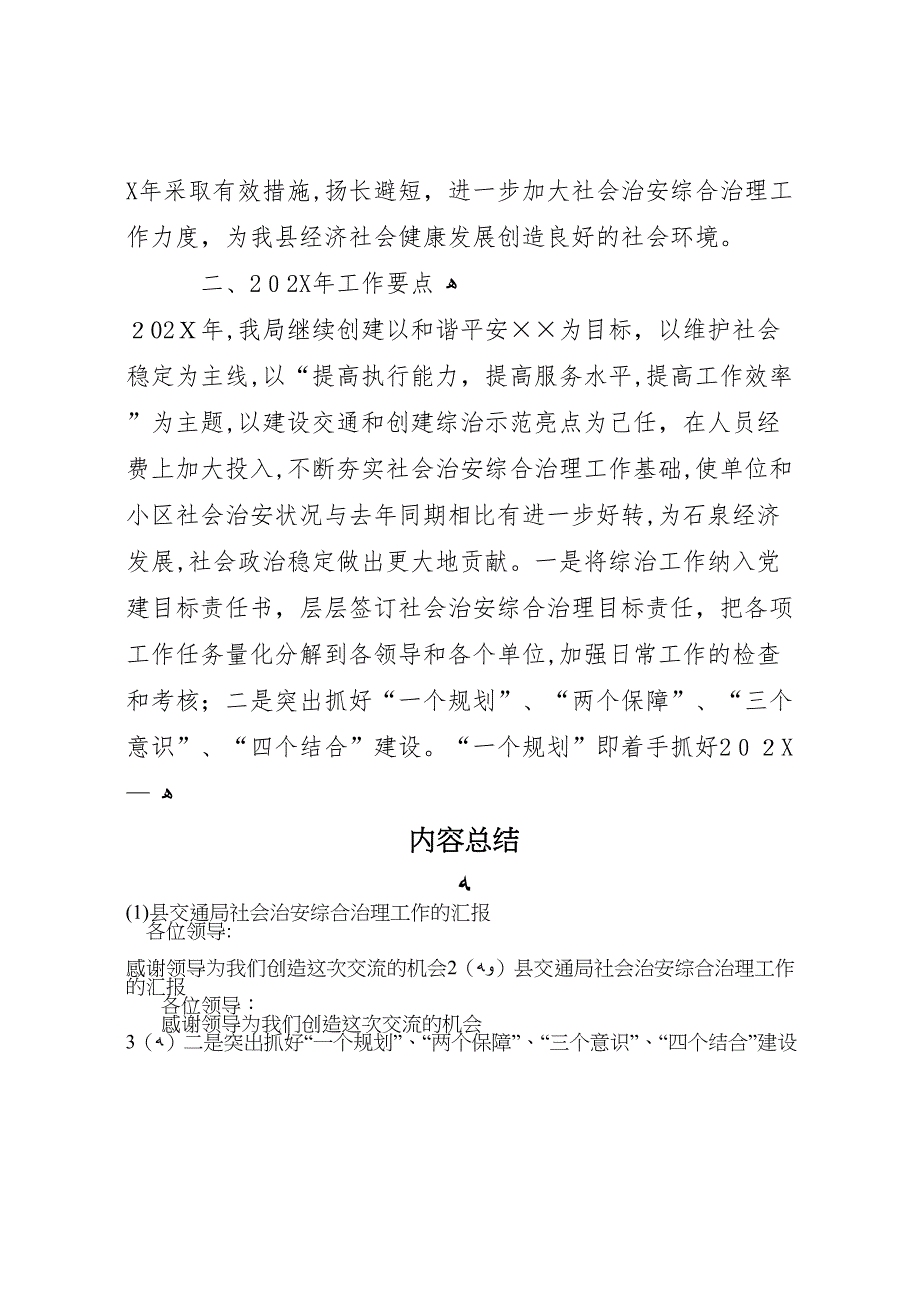 X年采取有效措施,扬长避短，进一步加大社会治安综合治理工
作力度，为我县经济社会健康发展创造良好的社会环境。
二、202X年工作要点 ﻫ
202X年,我局继续创建以和谐平安××为目标，以维护社会
稳定为主线,以“提高执行能力，提高服务水平,提高工作效率
”为主题,以建设交通和创建综治示范亮点为己任，在人员经
费上加大投入,不断夯实社会治安综合治理工作基础,使单位和
小区社会治安状况与去年同期相比有进一步好转,为石泉经济
发展,社会政治稳定做出更大地贡献。一是将综治工作纳入党
建目标责任书，层层签订社会治安综合治理目标责任，把各项
工作任务量化分解到各领导和各个单位,加强日常工作的检查
和考核；二是突出抓好“一个规划”、“两个保障”、“三个
意识”、“四个结合”建设。“一个规划”即着手抓好202X
— ﻫ
内容总结
ﻪ
(1)县交通局社会治安综合治理工作的汇报
各位领导:
感谢领导为我们创造这次交流的机会2（ﻪﻭ）县交通局社会治安综合治理工作
的汇报
各位领导：
感谢领导为我们创造这次交流的机会
3（ﻪ）二是突出抓好“一个规划”、“两个保障”、“三个意识”、“四个结合”建设